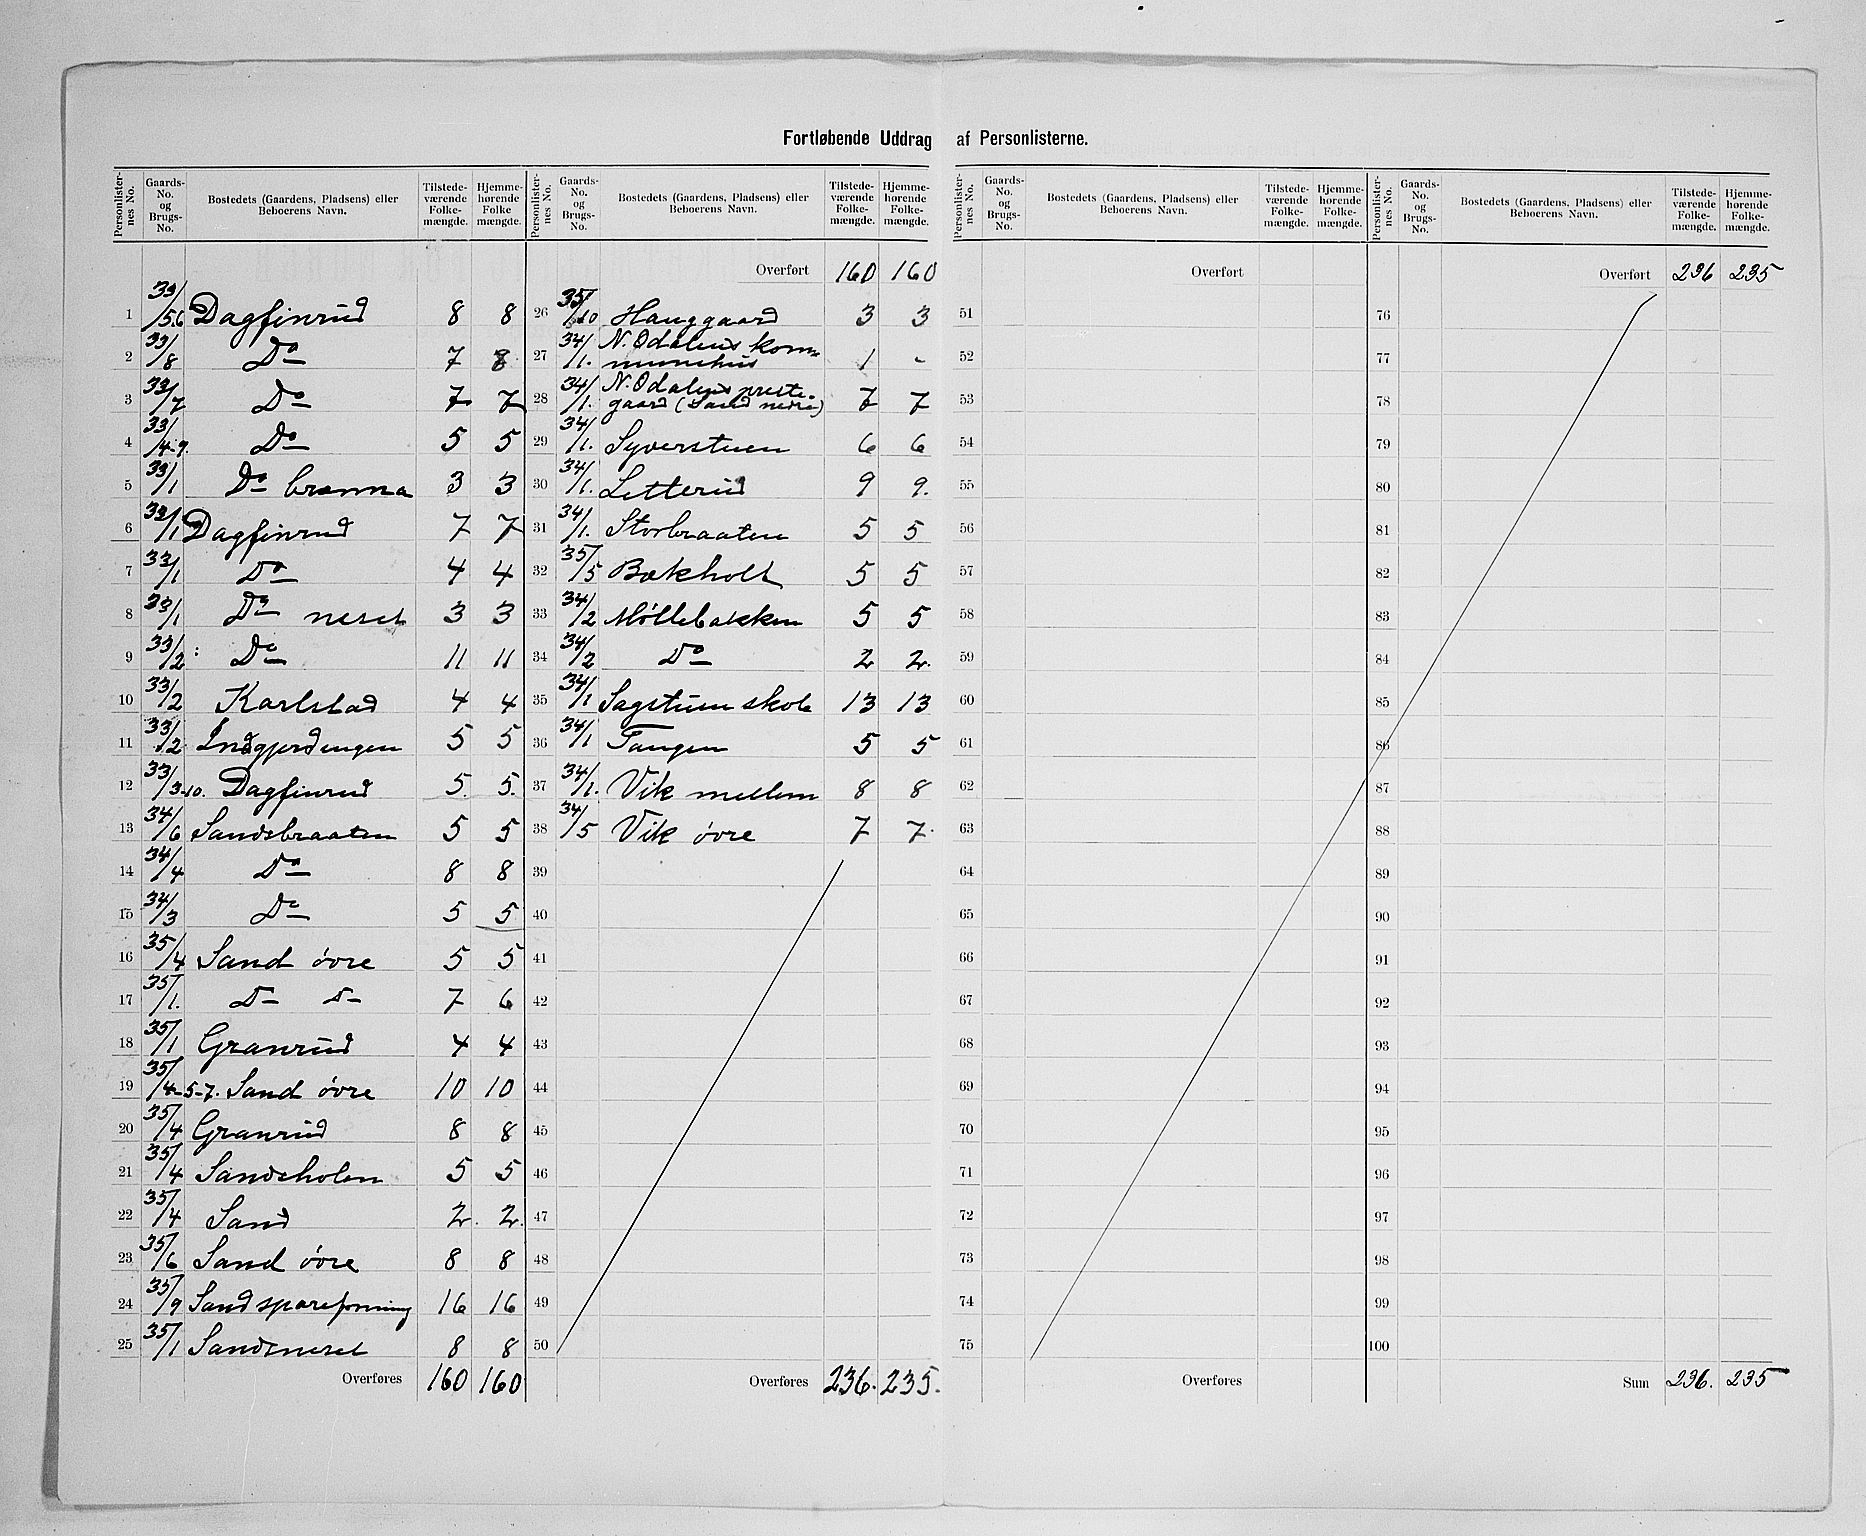 Fortløbende Uddrag af Personlisterne.
Personlisternes No. | Gaards-No. og Brugs-No. | Bostedets (Gaardens, Pladsens) eller Beboerens Navn. | Tilstedeværende Folkemængde. | Hjemmehørende Folkemængde.
1 33/5.6 Dagfinrud 8 8
2 33/8 Do 7 8
3 33/7 Do 7 7
4 33/4.9. Do 5 5
5 33/1 Do bramna 3 3
6 33/1 Dagfinrud 7 7
7 33/1 Do 4 4
8 33/1 Do neset 3 3
9 33/2 Do 11 11
10 33/2 Karlstad 4 4
11 33/2 Indgjerdengen 5 5
12 33/3-10. Dagfinrud 5 5
13 34/6 Sandsbraaten 5 5
14 34/4 Do 8 8
15 34/3 Do 5 5
16 35/4 Sand øvre 5 5
17 35/1. D- D- 7 6
18 35/1 Granrud 4 4
19 35/4-5-7. Sand øvre 10 10
20 35/4 Granrud 8 8
21 35/4 Sandsholen 5 5
22 35/4 Sand 2. 2.
23 35/6 Sand øvre 8 8
24 35/9 Sand spareforning 16 16
25 35/1 Sandsneset 8 8
Overføres 160 160
Personlisternes No. | Gaards-No. og Brugs-No. | Bostedets (Gaardens, Pladsens) eller Beboerens Navn. | Tilstedeværende Folkemængde. | Hjemmehørende Folkemængde.
Overført 160 160
26 35/10 Hauggaard 3 3
27 34/1. N. Odalens kommunehus 1 -
28 34/1. N. Odalens prestegaard (Sand nedre) 7 7
29 34/1. Syverstuen 6 6
30 34/1. Letterud 9 9.
31 34/1. Storbraaten 5 5
32 35/5 Bækholt 5 5
33 34/2 Møllebakken 5 5
34 34/2 Do 2 2.
35 34/1 Sagstuen skole 13 13
36 34/1 Tangen 5 5
37 34/1. Vik mellem 8 8
38 34/5 Vik øvre 7 7.
39
40
41
42
43
44
45
46
47
48
49
50
Overføres 236. 235.
Personlisternes No. | Gaards-No. og Brugs-No. | Bostedets (Gaardens, Pladsens) eller Beboerens Navn. | Tilstedeværende Folkemængde. | Hjemmehørende Folkemængde.
Overført
51
52
53
54
55
56
57
58
59
60
61
62
63
64
65
66
67
68
69
70
71
72
73
74
75
Overføres
Personlisternes No. | Gaards-No. og Brugs-No. | Bostedets (Gaardens, Pladsens) eller Beboerens Navn. | Tilstedeværende Folkemængde. | Hjemmehørende Folkemængde.
Overført 236 235
76
77
78
79
80
81
82
83
84
85
86
87
88
89
90
91
92
93
94
95
96
97
98
99
100
Sum 236. 235